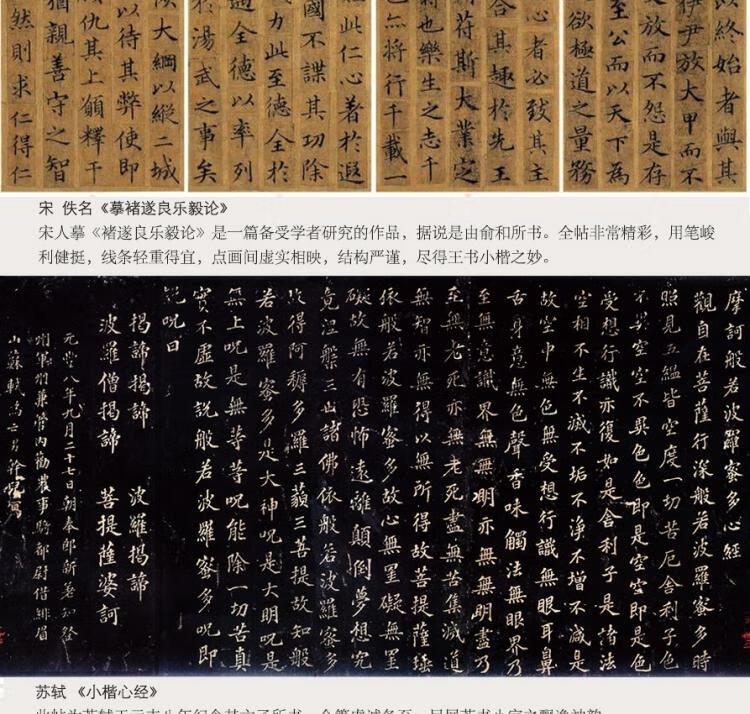 以終始者與其
伊尹放大甲而不
放而不怨是存
至公而以天下為
欲極道之量務
心者必致其主
合其趣於先王
苟符斯大業定
時也樂生之志千
亦將行千載一
此仁心著於遐
國不謀其功除
力此至德全於
全德以率列
於湯武之事矣
大綱以縱二城
以待其弊使即
仇其上願釋干
猶親善守之智
然則求仁得仁
宋 佚名《摹褚遂良乐毅论》
宋人摹《褚遂良乐毅论》是一篇备受学者研究的作品，据说是由俞和所书。全帖非常精彩，用笔峻
利健挺，线条轻重得宜，点画间虚实相映，结构严谨，尽得王书小楷之妙。
摩訶般若波羅蜜多心經
觀自在菩薩行深般若波羅蜜多時
照見五蘊皆空度一切苦厄舍利子色
不異空空不異色色即是空空即是色
受想行識亦復如是舍利子是諸法
空相不生不滅不垢不淨不增不減是
故空中無色無受想行識無眼耳鼻
舌身意無色聲香味觸法無眼界乃
至無意識界無無明亦無無明盡乃
至無老死亦無老死盡無苦集滅道
無智亦無得以無所得故菩提薩埵
依般若波羅蜜多故心無罣礙無罣
礙故無有恐怖遠離顛倒夢想究
竟涅槃三世諸佛依般若波羅蜜多
故得阿耨多羅三藐三菩提故知般
若波羅蜜多是大神咒是大明咒是
無上咒是無等等咒能除一切苦真
實不虛故說般若波羅蜜多咒即
說咒曰
揭諦揭諦 波羅揭諦
波羅僧揭諦 菩提薩婆訶
元豐八年九月二十七日朝奉郎新差知登
州軍州兼管內勸農事騎都尉借緋眉
山蘇軾為
苏轼 《小楷心经》